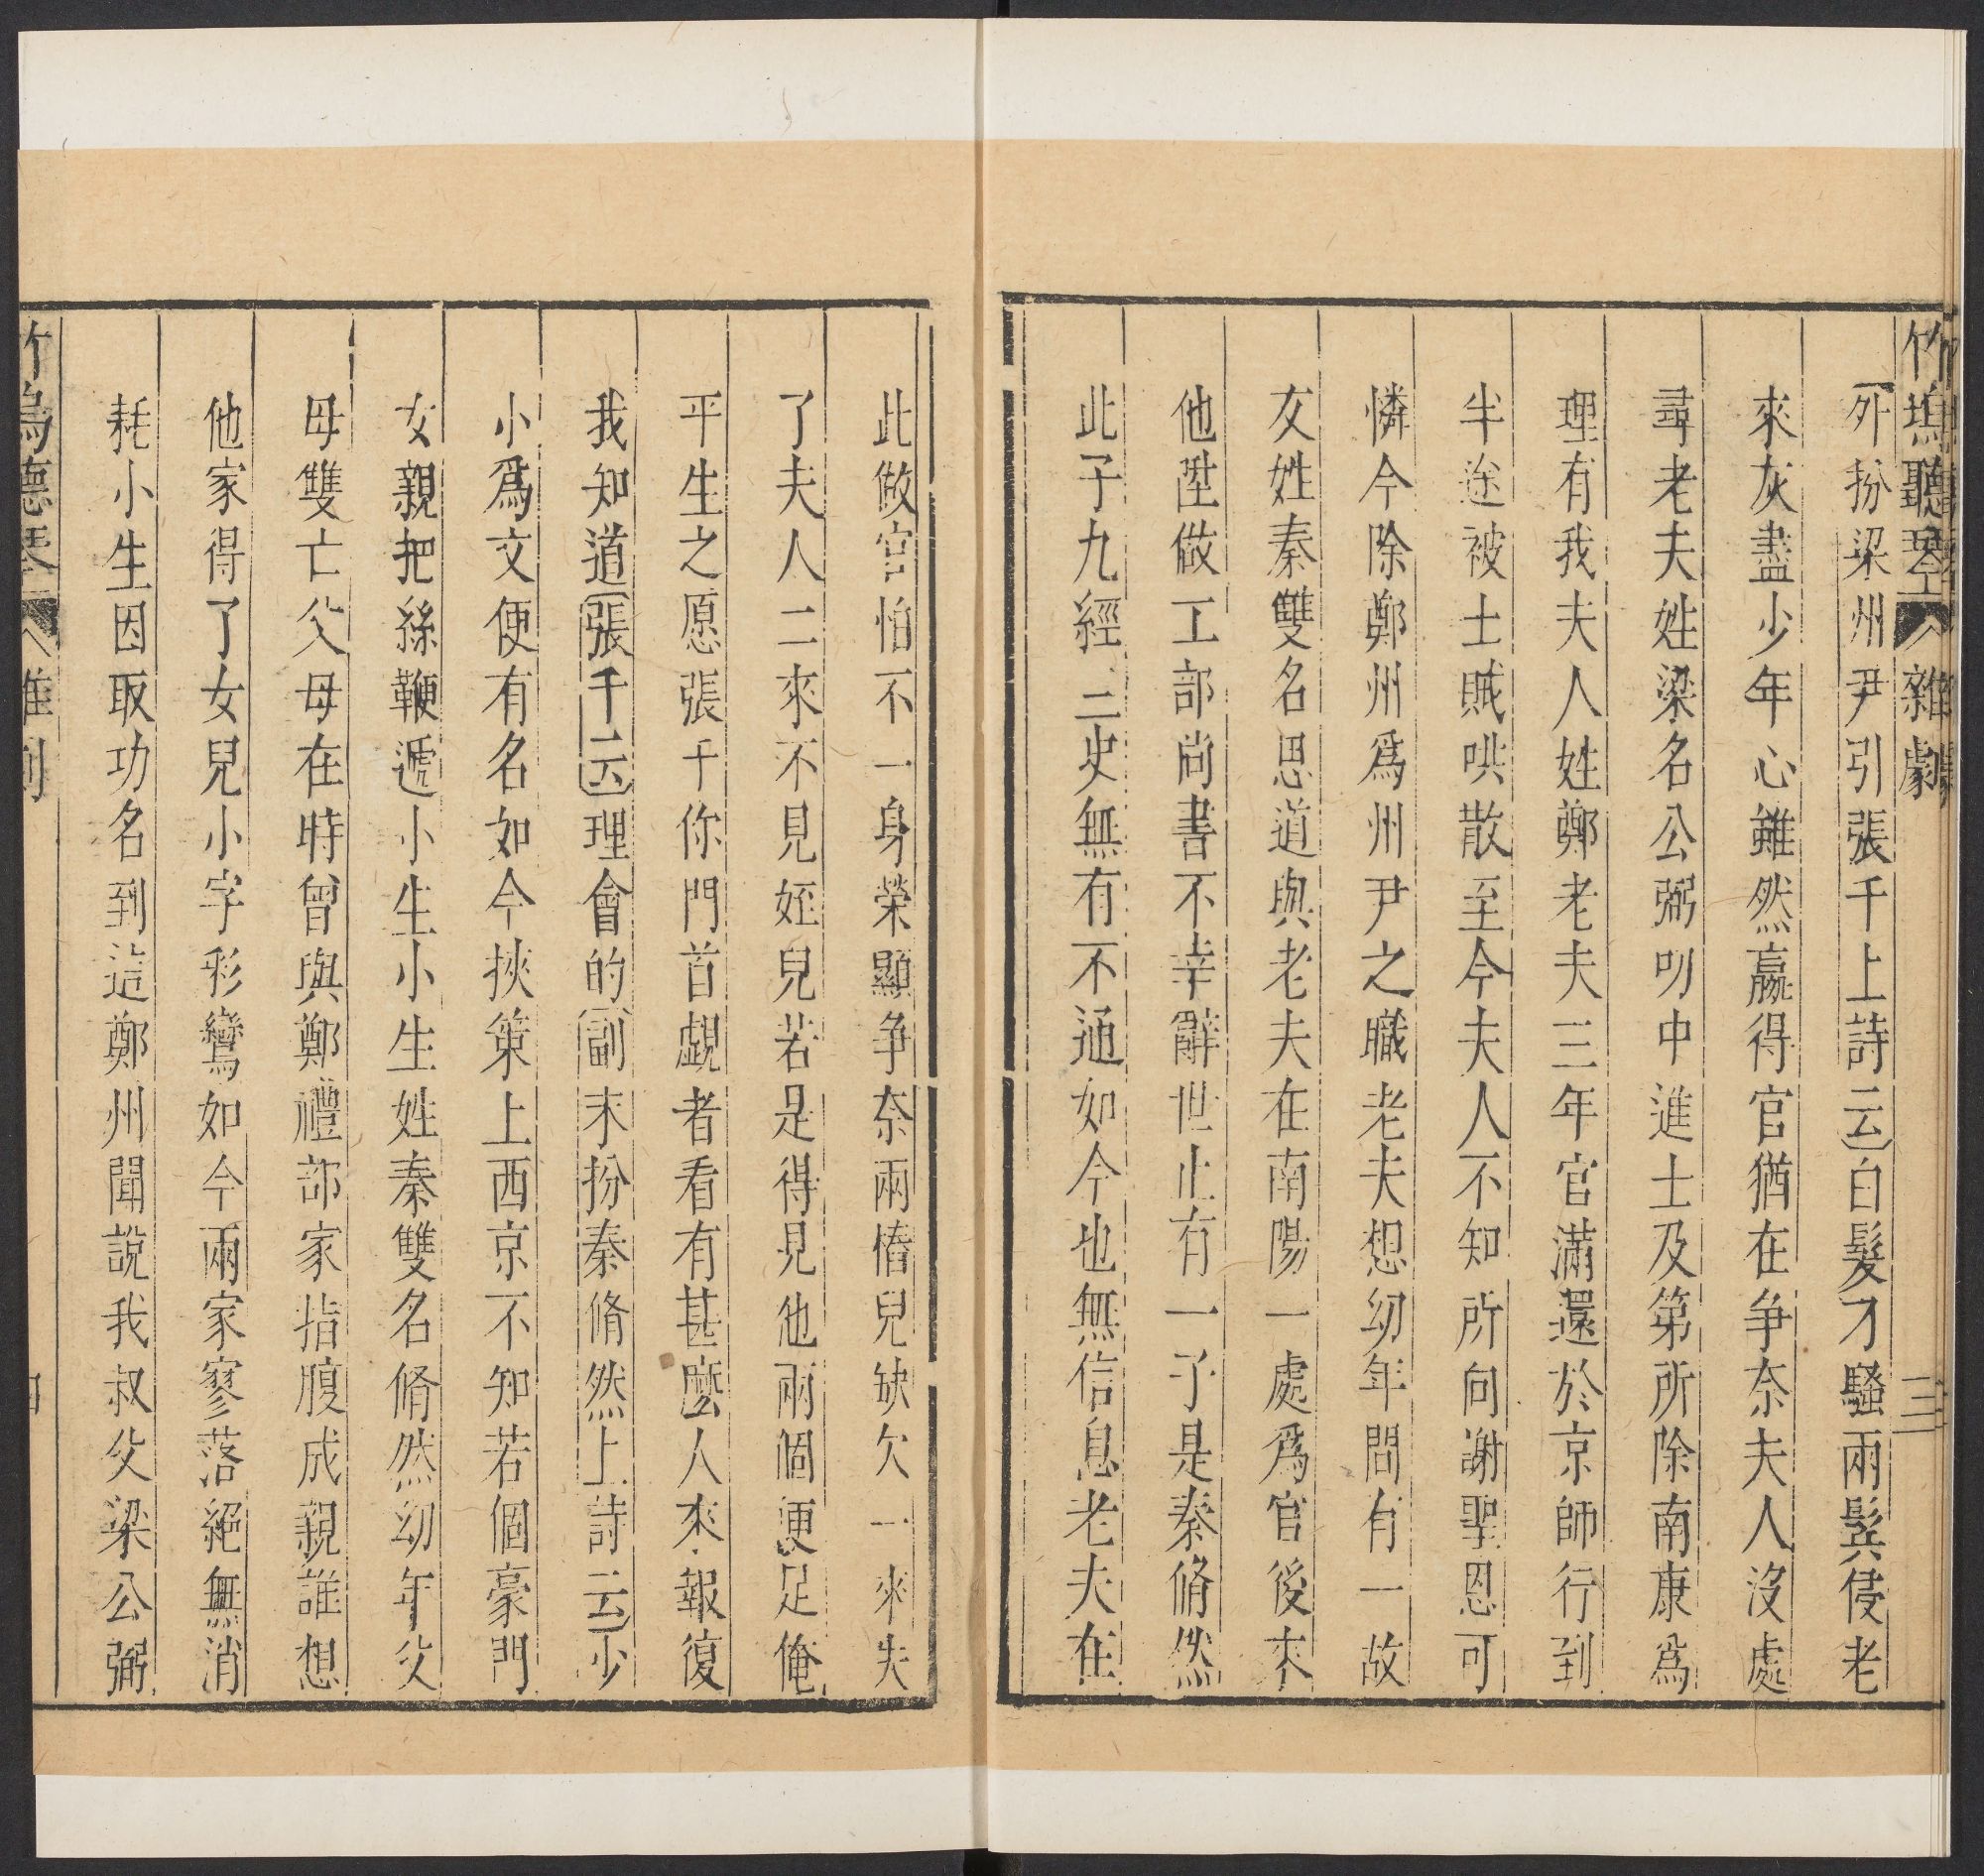 竹塢聽琴 雜劇 三
外扮梁州尹引張千上詩云白髮刁騷兩鬂侵老
來灰盡少年心雖然贏得官猶在争奈夫人沒處
尋老夫姓梁名公弼叨中進士及第所除南康爲
理有我夫人姓鄭老夫三年官滿還於京師行到
半途被土賊哄散至今夫人不知所向謝聖恩可
憐今除鄭州爲州尹之職老夫想幼年間有一故
友姓秦雙名思道與老夫在南陽一處爲官後來
他陞做工部尚書不幸辭世止有一子是秦脩然
此子九經三史無有不通如今也無信息老夫在
此做官怕不一身榮顯争奈兩樁兒缺欠一來失
了夫人二來不見姪兒若是得見他兩個便足俺
平生之愿張千你門首覷者看有甚麽人來報復
我知道張千云理會的副末扮秦脩然上詩云少
小爲文便有名如今挾策上西京不知若個豪門
女親把絲鞭遞小生小生姓秦雙名脩然幼年父
母雙亡父母在時曾與鄭禮部家指腹成親誰想
他家得了女兒小字彩鸞如今兩家寥落絕無消
耗小生因取功名到這鄭州聞說我叔父梁公弼